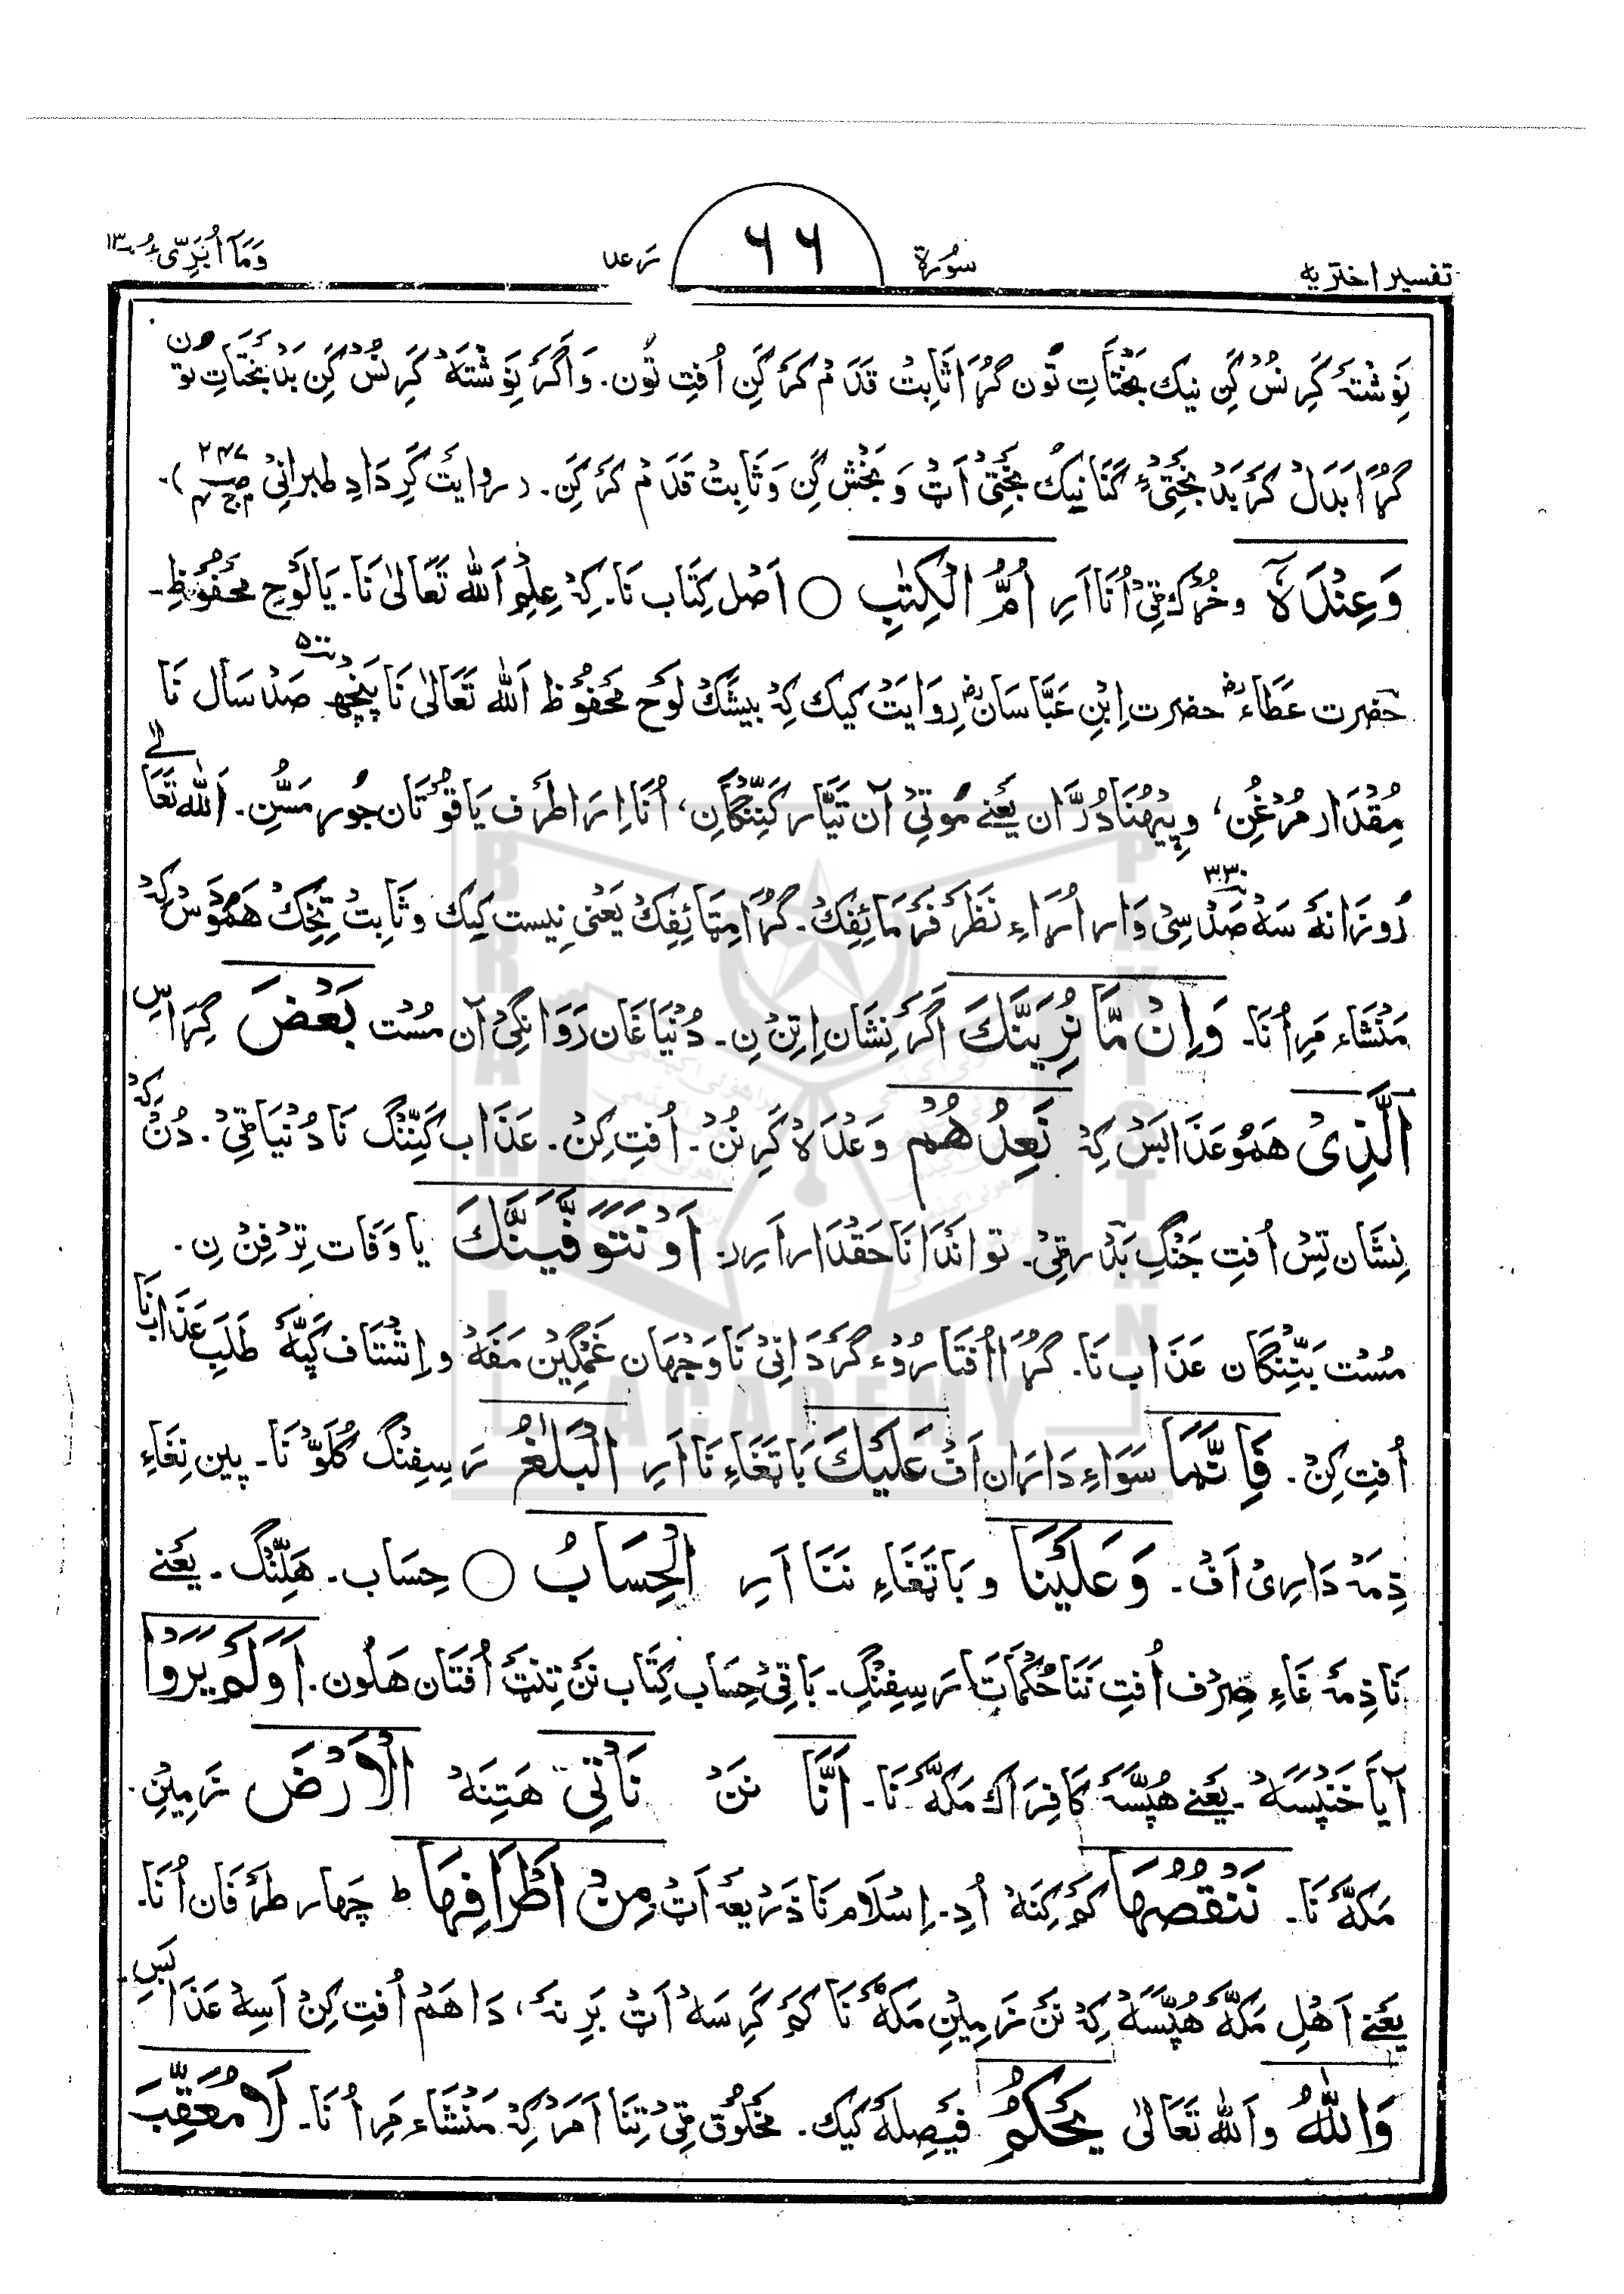 تفسیر اختریه سُورة ٦٦ رَعد وَمَآ اُبَرِّیءُ ۱۳
نِوِشْتَہ کَرِ نُسْ کَنِ نیک بَخْتَاتِ تُون گُڑا ثَابِتْ قَدَمْ کَرَ کَنِ اُفتِ تُون۔ وَاَگَرَ نِوِشْتَہ کَرِ نُسْ کَنِ بَدْبَخْتَاتِ تون
گُڑا بَدَلْ کَرَ بَدْ بَخْتِیءِ کَنَا نِیْکْ بَخْتِیْ اَٹْ وَ بَخْشْ کَنِ وَ ثَابِتْ قَدَمْ کَرَ کَنِ۔ (روایَتْ کَرِ دَادِ طبرانِیْ ص۲۴۷ ج۴)۔
وَعِنْدَہٗٓ و خُڑک ٹِیْ اُنَا اَرِ اُمُّ الْکِتٰبِ ○ اَصْل کِتَاب نَا۔ کِہْ عِلِمِ اَللّٰه تَعَالیٰ نَا۔ یَا لَوْحِ مَحْفُوْظِ۔
حَضْرت عَطَاءؒ حضرت اِبْنِ عَبَّاسَانؓ رِوَایَتْ کیک کِہْ بیشَکْ لَوْحِ مَحْفُوْظ اَللّٰه تَعَالیٰ نَا پَنْچ صَدْ سَال نَا ۵۰۰
مِقْدَار مُرْغُنِ، و پِیْہُنَا دُرَّان یَعْنے مَوْتِیْ آن تَیَّار کَنِنْگَانِ، اُنَا اِرَا طَرَف یَاقُوْتَان جُوڑ مَسُّنِ۔ اَللّٰه تَعَالےٰ
رُوزَانَہ سَہ صَدْ سِیْ ۳۳۰ وَار اُرَاءِ نَظَرْ فَرْمَائِفِکْ۔ گُڑا مِٹَائِفِکْ یَعْنِی نِیست کیک و ثَابِتْ تِخِکْ ھَمُوسْ کِہْ
مَنْشَاء مَرِ اُنَا۔ وَاِنْ مَّا نُرِیَنَّکَ اَگَرْ نِشَان اِتِنْ نِ۔ دُنْیَا غَان رَوَانگِیْ آن مُسْت بَعْضَ کِرَاسِ
الَّذِیْ ھَمُو عَذَابَسْ کِہْ نَعِدُھُمْ وَعْدَہْ کَرِ نُنْ۔ اُفتِ کِنْ۔ عَذَاب کَنِنْگ نَا دُنْیَا ٹِیْ۔ دُنْکِہْ
نِشَان تِسْ اُفتِ جَنْگِ بَدْر ٹِیْ۔ تو اندَا نَا حَقْدَار اَرِر۔ اَوْ نَتَوَفَّیَنَّکَ یا وَفَات تِرْفِنْ نِ۔
مُسْت بَنِنْگان عَذَاب نَا۔ گُڑا اُفْتَا رُوْءِ گَرْدَانِیْ نَا وَجْہَان غَمْگِیْن مَفَہْ و اِشْتَاف کَپَّہ طَلَبِ عَذَاب نَا
اُفتِ کِنْ۔ فَاِنَّمَا سَوَاءِ دَارَان اَفْ عَلَیْکَ بَا تَغَاءِ نَا اَرِ الْبَلٰغُ رَسِفِنْگ کُلَوّ نَا۔ پین نِغَاءِ
ذِمّہ دَارِیْ اَفْ۔ وَعَلَیْنَا و بَا تَغَاءِ نَنَا اَرِ الْحِسَابُ ○ حِسَاب۔ ھَلِنْگ۔ یَعْنے
نَا ذِمّہ غَاءِ صِرْف اُفتِ نَنَا حُکْمَاتَا رَسِفِنْگِ۔ بَاقِیْ حِسَاب کِتَاب نَنْ تِنَٹْ اُفْتَان ھَلُون۔ اَوَلَمْ یَرَوْا
آیَا خَنْپَسَہْ۔ یَعْنے ھُپِسَّہْ کَافِرَاک مَکَّہ نَا۔ اَنَّا نَنْ نَاْتِی ھَتِنَہْ الْاَرْضَ زَمِیْنِ۔
مَکَّہ نَا۔ نَنْقُصُہَا کَمْ کِنَہْ اُدِ۔ اِسْلَام نَا ذَرِیعہ اَٹْ مِنْ اَطْرَافِہَا ط چَہَار طَرَفَان اُنَا۔
یَعْنے اَھْلِ مَکَّہ ھُپِسَّہْ کِہْ نَنْ زَمِیْنِ مَکَّہ نَا کَمْ کَرِسَہْ اَٹْ بَرِنَہ، دَا ھَمْ اُفتِ کِنْ اَسِہْ عَذَابَسِ
وَاللّٰہُ و اَللّٰه تَعَالیٰ یَحْکُمُ فَیْصِلَہ کیک۔ مَخْلُوْق ٹِیْ تِنَا اَمَرْ کِہْ مَنْشَاء مَرِ اُنَا۔ لَا مُعَقِّبَ
BRAHUI ACADEMY PAKISTAN